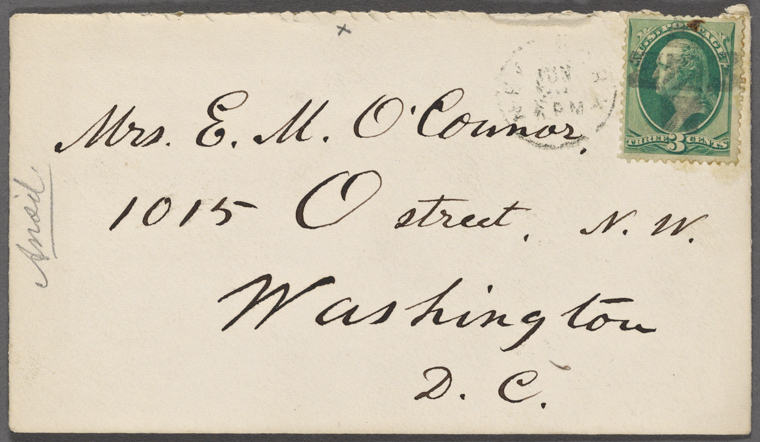 U.S. POSTAGE
JUN
PM
THREE 3 CENTS
Mrs. E. M. O'Connor,
1015 O street, N. W.
Washington
D. C.